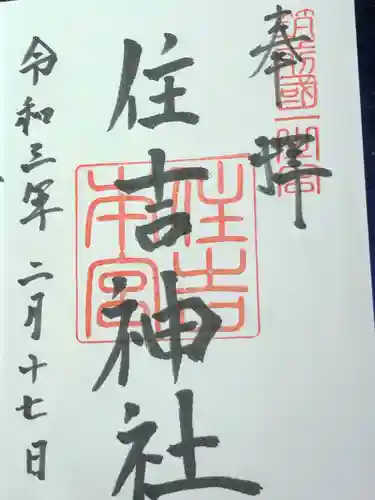 筑前國一之宮
奉拝
住吉神社
住吉本宮
令和三年 二月十七日